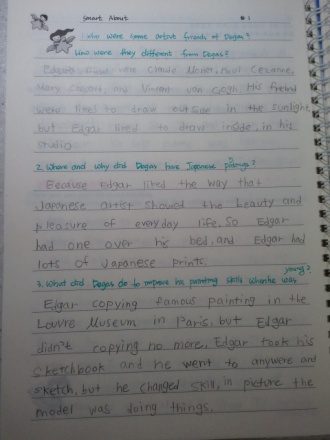 Smart About #1
Who were some artist friends of Degas?
How were they different from Degas?
Edgar's were Claude Monet, Paul Cezanne,
Mary Cassatt, and Vincent van Gogh. His friend
were liked to draw outside in the sunlight
but Edgar liked to draw inside, in his
studio.
2. Where and why did Degas have Japanese paintings?
Because Edgar liked the way that
Japanese artist showed the beauty and
pleasure of everyday life. So Edgar
had one over his bed, and Edgar had
lots of Japanese prints.
young?
3. What did Degas do to improve his painting skills when he was
Edgar copying famous painting in the
Louvre Museum in Paris, but Edgar
didn't copying no more, Edgar took his
sketchbook and he went to anywere and
sketch, but he changed skill, in picture the
model was doing things.